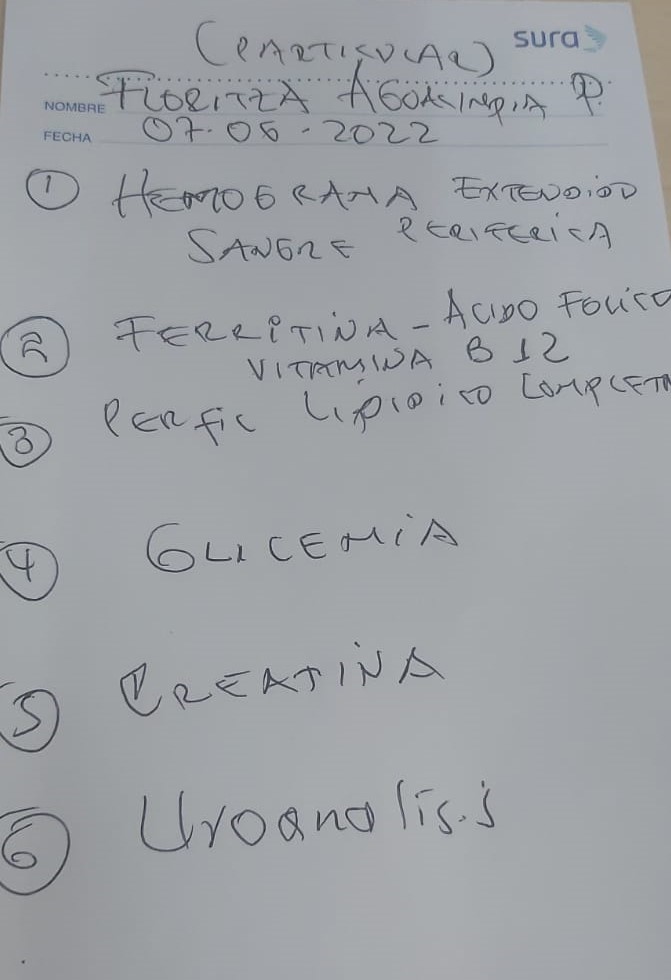 (PARTICULAR) sura
NOMBRE FLORITZA P.
FECHA 07.06.2022
① HEMOGRAMA EXTENDIDO
SANGRE PERIFERICA
② FERRITINA - ACIDO FOLICO
VITAMINA B 12
③ PERFIL LIPIDICO COMPLETO
④ GLICEMIA
⑤ CREATINA
⑥ Uroanalisis